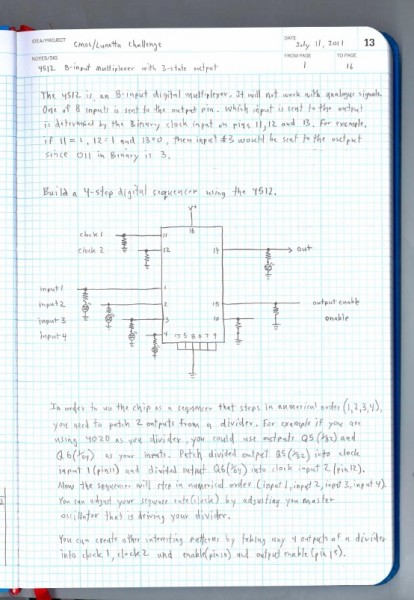 IDEA/PROJECT
Cmos/Lunetta Challenge
DATE
July 11, 2011
13
NOTES/SIG
4512 8-input multiplexer with 3-state output
FROM PAGE
1
TO PAGE
16
The 4512 is an 8-input digital multiplexer. It will not work with analogue signals.
One of 8 inputs is sent to the output pin. Which input is sent to the output
is determined by the Binary clock input on pins 11, 12 and 13. For example,
if 11=1, 12=1 and 13=0, then input #3 would be sent to the output
since 011 in Binary is 3.
Build a 4-step digital sequencer using the 4512.
V+
16
clock 1
11
clock 2
12
14
out
input 1
1
input 2
2
15
output enable
input 3
3
10
enable
input 4
4
7 5 8 6 7 9
In order to use the chip as a sequencer that steps in numerical order (1,2,3,4),
you need to patch 2 outputs from a divider. For example if you are
using 4020 as your divider, you could use outputs Q5(/32) and
Q6(/64) as your inputs. Patch divided output Q5(/32) into clock
input 1 (pin 11) and divided output Q6(/64) into clock input 2 (pin 12).
Now the sequencer will step in numerical order (input 1, input 2, input 3, input 4).
You can adjust your sequence rate (clock) by adjusting you master
oscillator that is driving your divider.
You can create other interesting patterns by taking any 4 outputs of a divider
into clock 1, clock 2 and enable (pin 10) and output enable (pin 15).